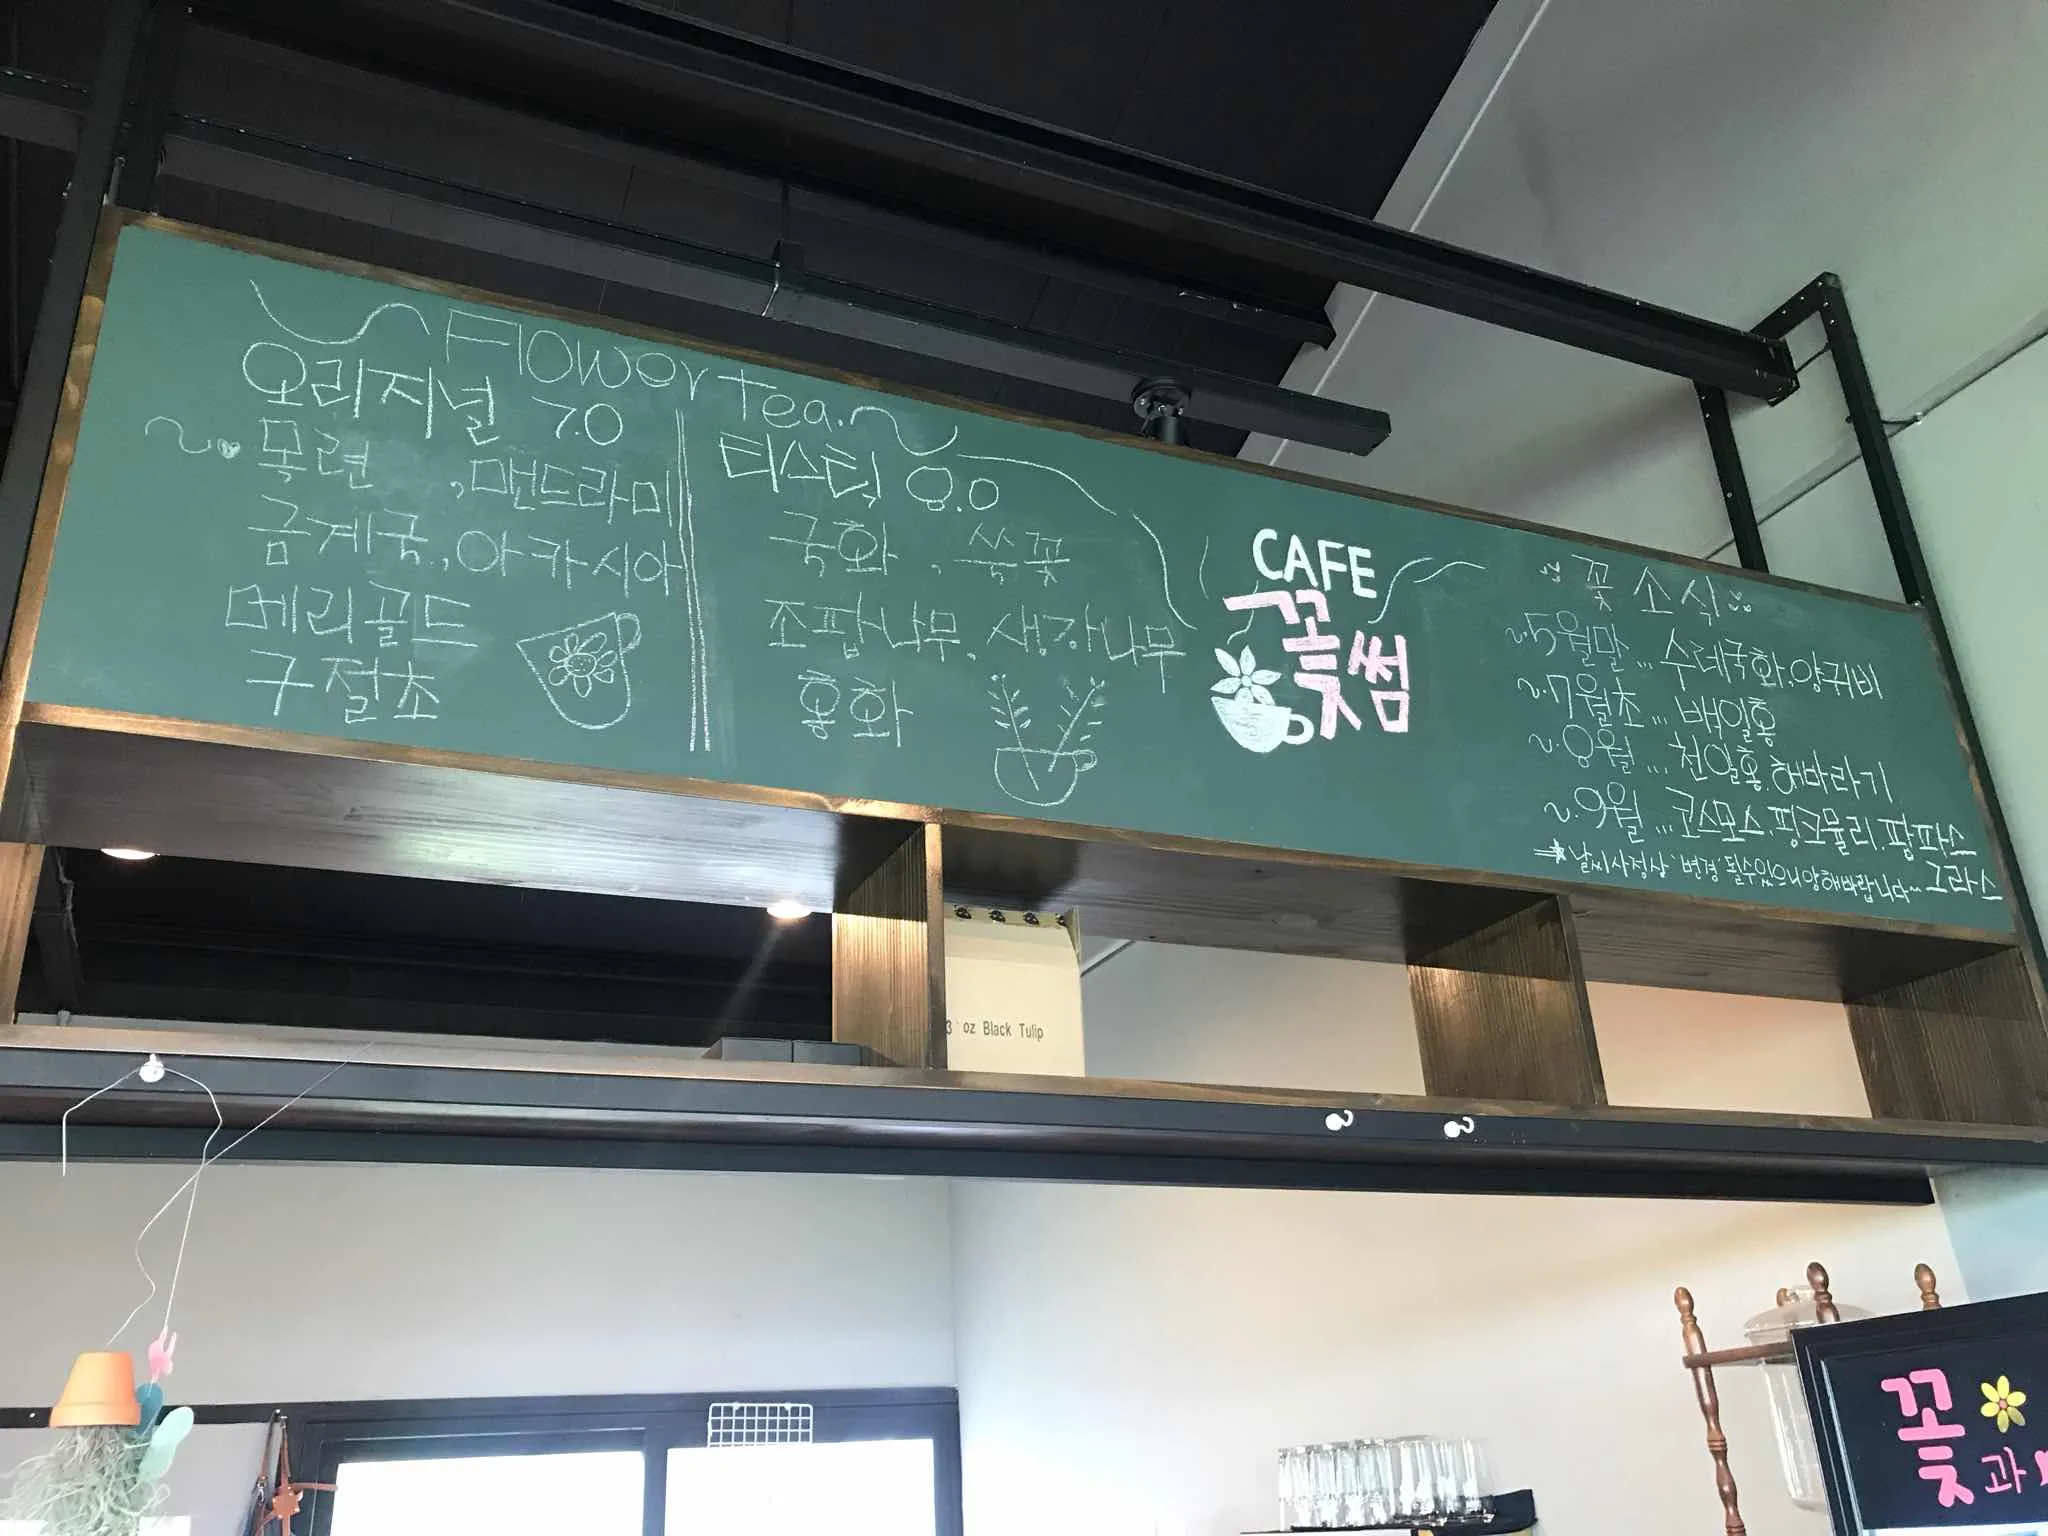 Flower tea.
오리지널 7.0
목련 , 맨드라미
금계국., 아카시아
메리골드
구절초
티스틱 8.0
국화 , 쑥꽃
조팝나무, 생강나무
홍화
CAFE
꽃썸
꽃 소식
5월말 ... 수레국화. 양귀비
7월초 ... 백일홍
8월 ... 천일홍. 해바라기
9월 ... 코스모스. 핑크뮬리. 팜파스
그라스
날씨사정상. 변경. 될수있으니 양해바랍니다~
oz Black Tulip
꽃과